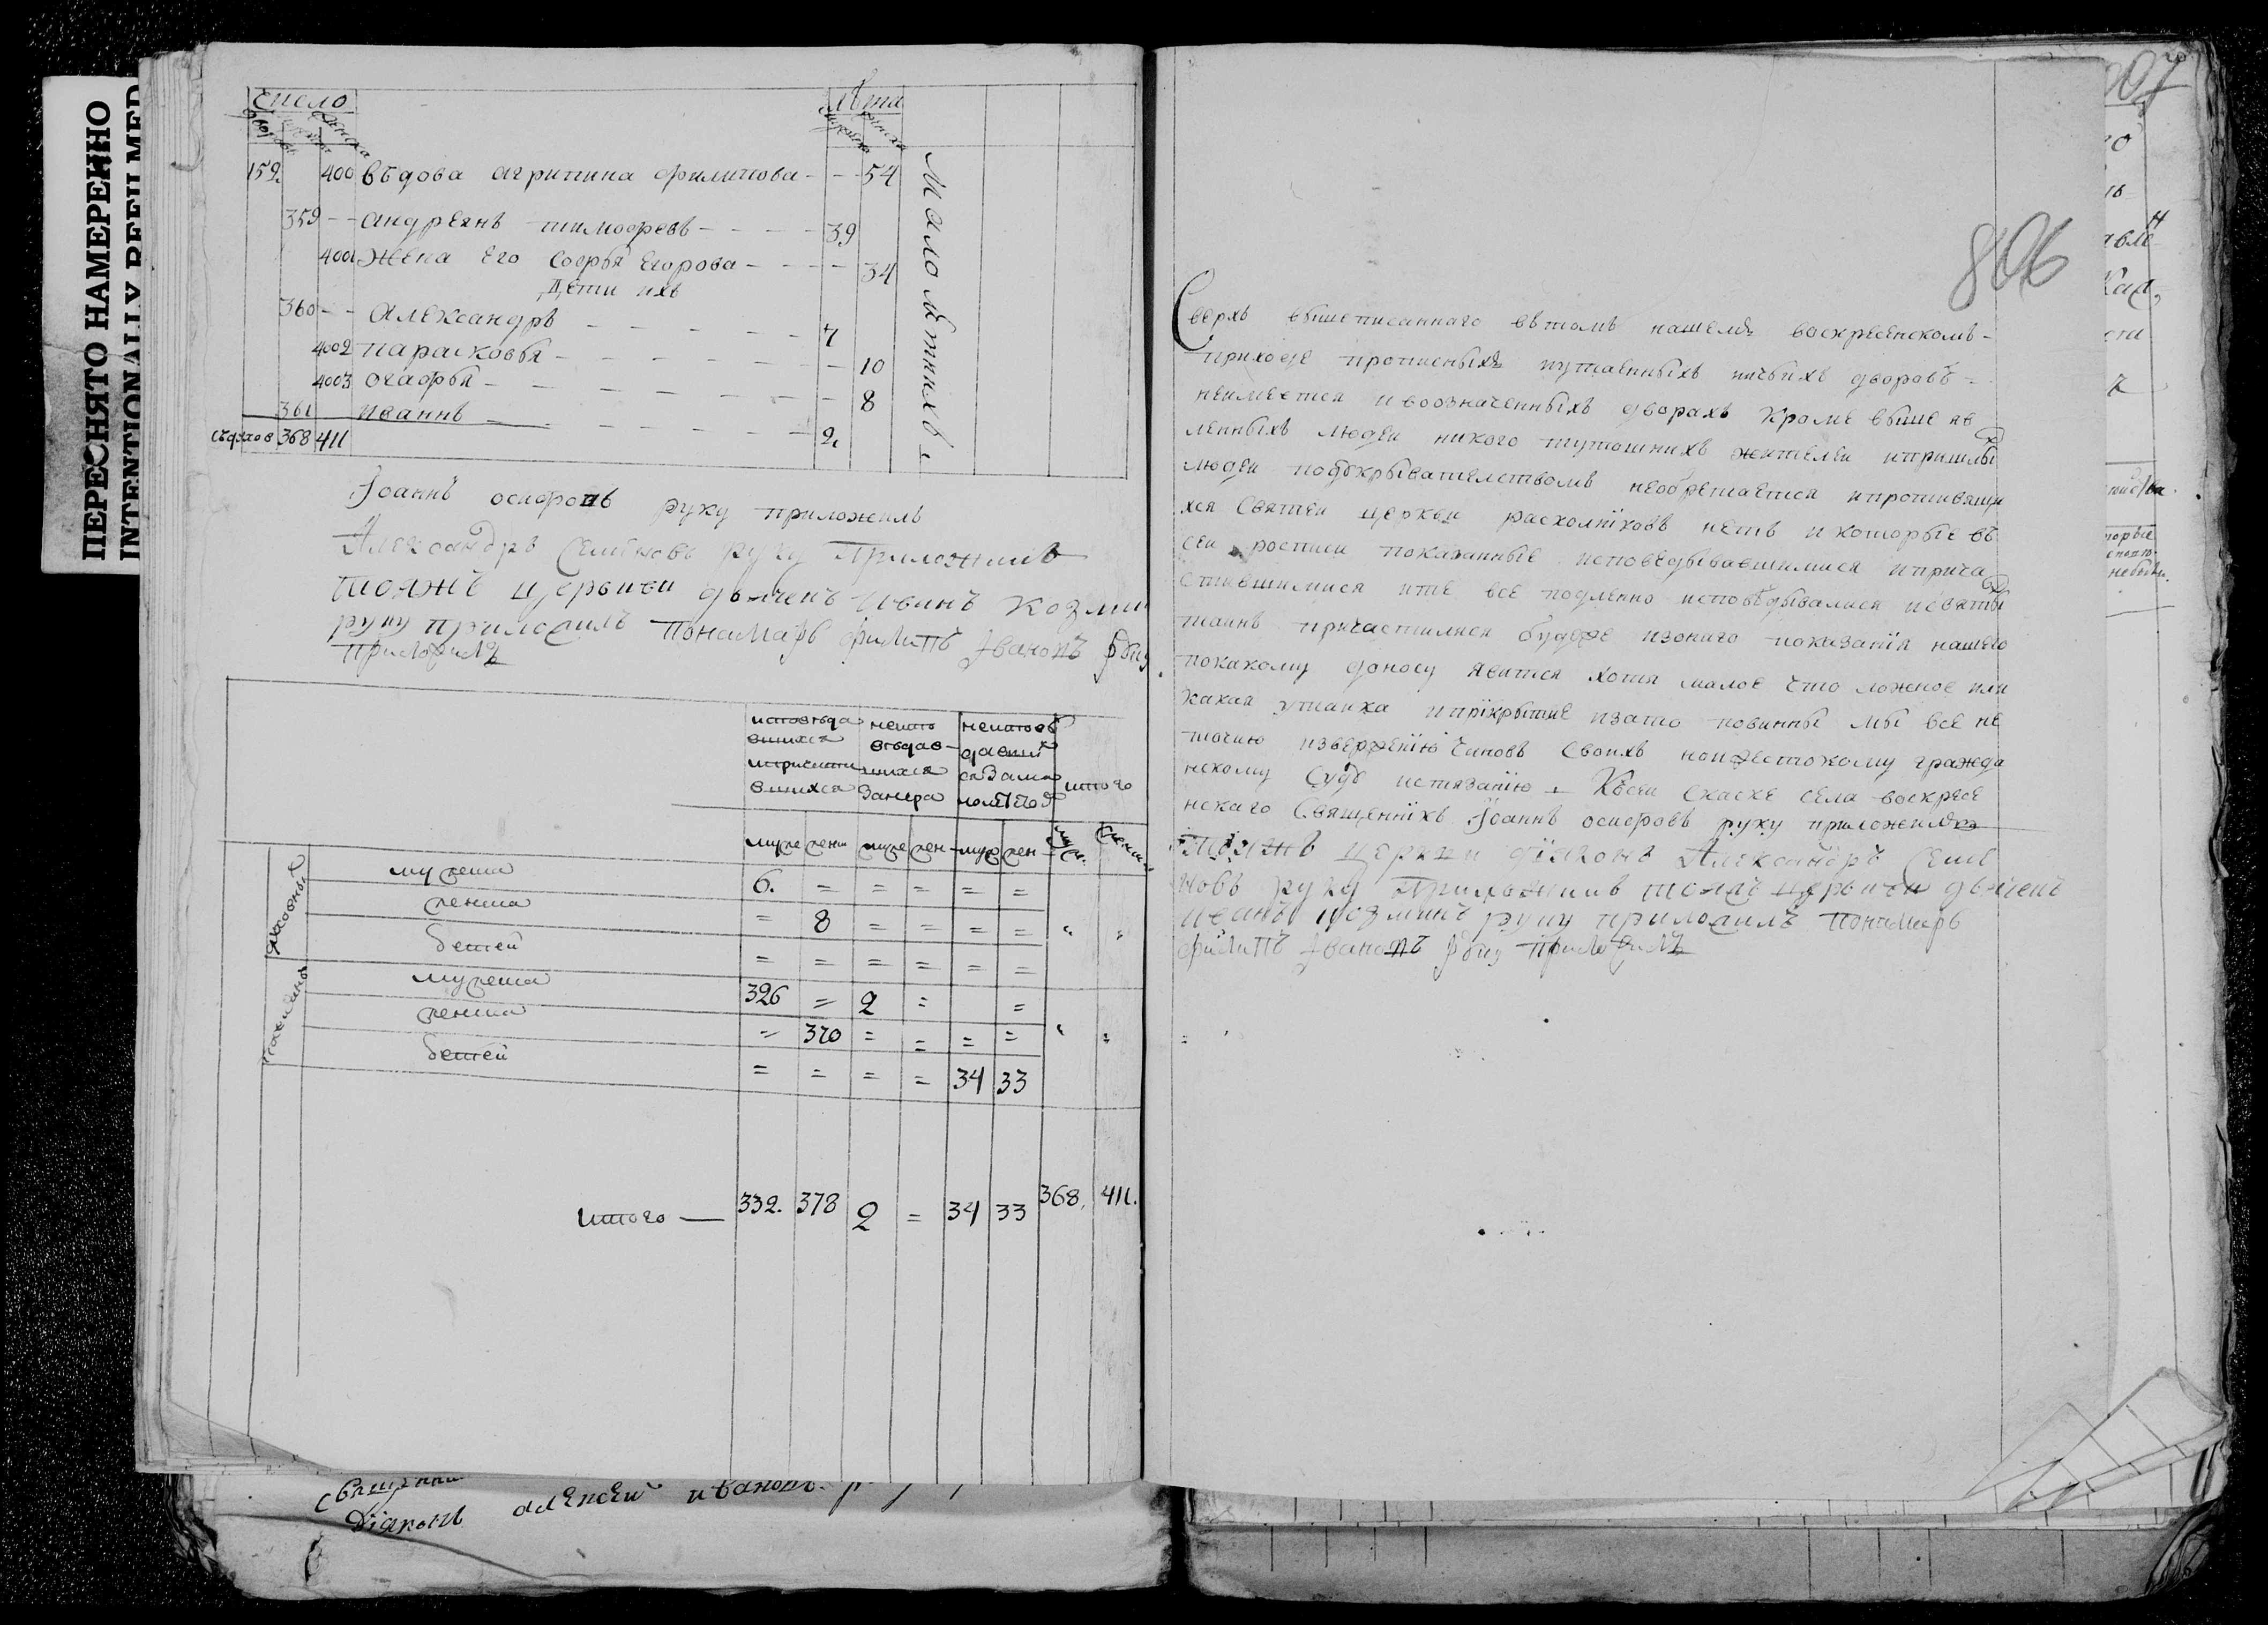 ПЕРЕСНЯТО НАМЕРЕННО
INTENTIONALLY
число
лѣта
159. 400 въдова агрипина филипова 54
359 андреянъ тимофеевъ 39
4001 жена его софья егорова 34
дѣти ихъ
360 александръ 7
4002 парасковья 10
4003 огафья 8
361 иваннъ 2
368 411
малолѣтнихъ
Іоаннъ осифовъ руку приложилъ
Александръ Семеновъ руку приложилъ
тояжъ церькви дьяченъ иванъ козми
руку приложилъ понамарь филипъ Iвановъ руку
приложилъ
исповѣда вшихся ипричасти вшихся
неиспо вѣдав шихся
итого
муже жен муже жен муж жен
духовныя
мужеска 6. = = = = =
женска = 8 = = = =
детей = = = = = =
мужеска 326 = 2 = =
женска = 370 = = = =
детей = = = = 34 33
итого — 332. 378 2 = 34 33 368. 411.
806
Сверхъ вышеписаннаго втомъ нашемъ воскресенскомъ
приходе прописныхъ иутаенныхъ ничьихъ дворовъ
неимеется ивоозначенныхъ дворахъ кроме выше яв
ленныхъ людеи никого тутошнихъ жителеи ипришлых
людеи подъкрывателствомъ необретается ипротивящи
хся Святеи церкви расколнїковъ нетъ и которые въ
сеи росписи показанные исповедывавшимися иприча
стившимися ите все подленно исповѣдывалися исвятых
таинъ причастилися будеже изонаго показанїя нашего
покакому доносу явится хотя малое что ложное или
какая утаика иприкрытие изато повинны мы все не
точию извержению чиновъ своихъ нонижестокому гражда
нскому суду истязанїю Ксеи скаске села воскресе
нскаго Священнїкъ Iоаннъ осифовъ руку приложилъ
тояжъ церкви дїяконъ Александръ Семе
новъ руку приложилъ тояжъ церькви дьяченъ
иванъ козминъ руку приложилъ понамарь
филипъ Iвановъ руку приложилъ
Дiяконъ алексеи ивановъ